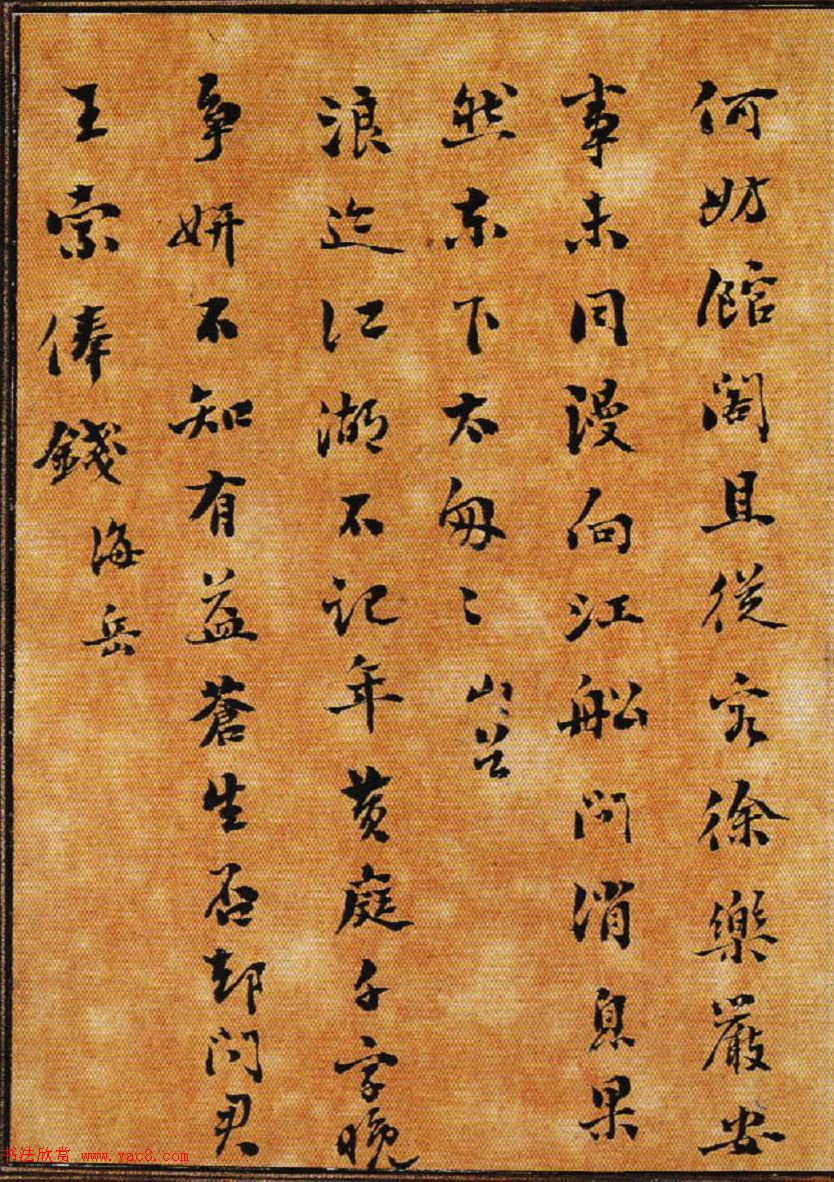 何妨館閣且從容徐樂嚴安
事未同漫向江船問消息果
然東下太匆〻 山谷
浪迹江湖不記年黃庭千字晚
爭妍不知有益蒼生否却問君
王索俸錢 海岳
书法欣赏 www.yac8.com